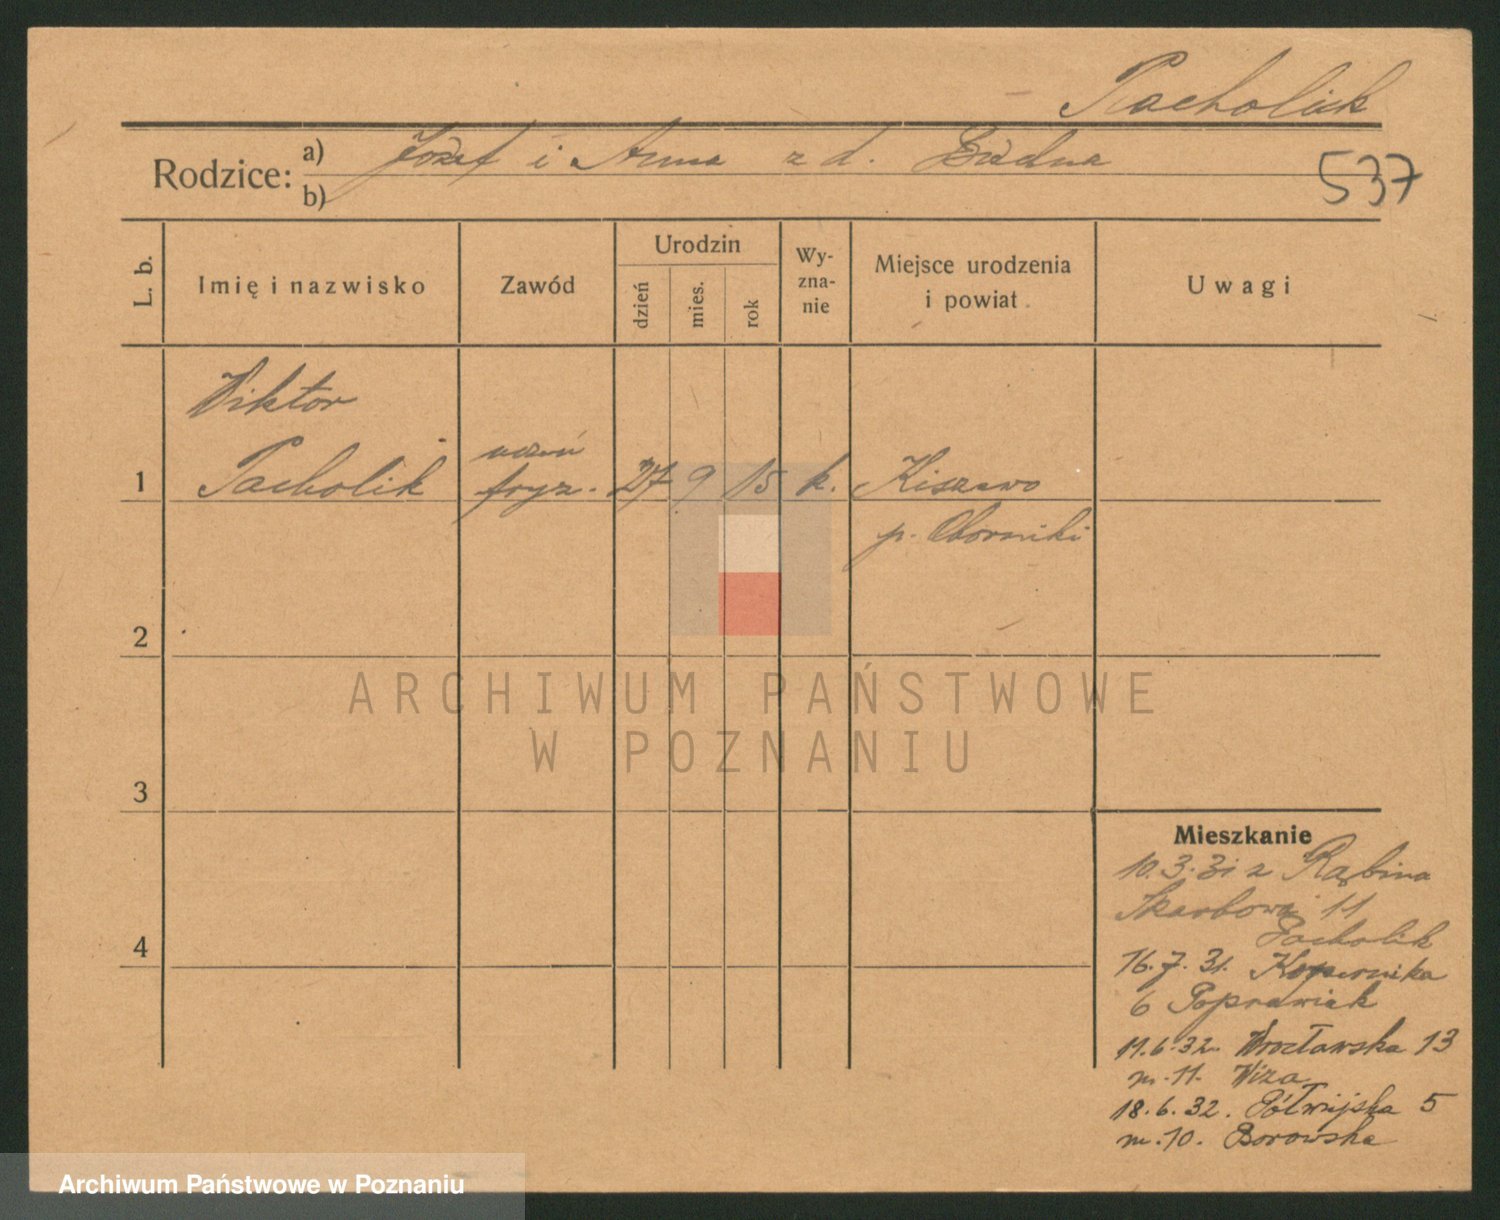 Pacholik
Rodzice: a) Józef i Anna z d.
b)
537
L. b.
Imię i nazwisko
Zawód
Urodzin
dzień
mies.
rok
Wy-
zna-
nie
Miejsce urodzenia
i powiat
Uwagi
Wiktor
1 Pacholik uczeń fryz. 27 9 15 k. Kiszewo
p. Oborniki
2
3
4
ARCHIWUM PAŃSTWOWE
W POZNANIU
Mieszkanie
10.3.31 z Rąbina
Skarbowa 11
Pacholik
16.7.31. Kopernika
6 Poprawiak
11.6.32. Wrocławska 13
m. 11. Wiza
18.6.32. Półwiejska 5
m. 10. Borowska
Archiwum Państwowe w Poznaniu